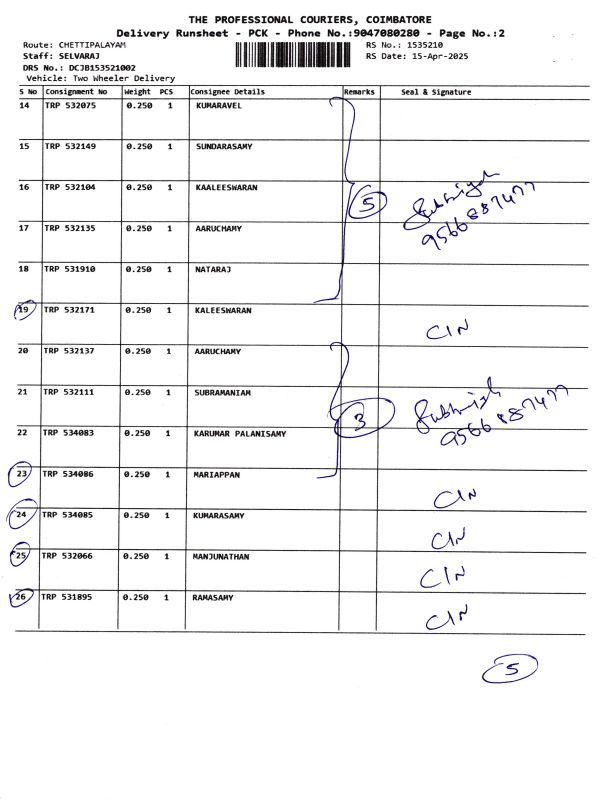 THE PROFESSIONAL COURIERS, COIMBATORE
Delivery Runsheet - PCK - Phone No.:9047080280 - Page No.:2
Route: CHETTIPALAYAM RS No.: 1535210
Staff: SELVARAJ RS Date: 15-Apr-2025
DRS No.: DCJB153521002
Vehicle: Two Wheeler Delivery
S No Consignment No Weight PCS Consignee Details Remarks Seal & Signature
14 TRP 532075 0.250 1 KUMARAVEL
15 TRP 532149 0.250 1 SUNDARASAMY
16 TRP 532104 0.250 1 KAALEESWARAN 5
9566887477
17 TRP 532135 0.250 1 AARUCHAMY
18 TRP 531910 0.250 1 NATARAJ
19 TRP 532171 0.250 1 KALEESWARAN CIN
20 TRP 532137 0.250 1 AARUCHAMY
21 TRP 532111 0.250 1 SUBRAMANIAM 3
9566887477
22 TRP 534083 0.250 1 KARUMAR PALANISAMY
23 TRP 534086 0.250 1 MARIAPPAN CIN
24 TRP 534085 0.250 1 KUMARASAMY CIN
25 TRP 532066 0.250 1 MANJUNATHAN CIN
26 TRP 531895 0.250 1 RAMASAMY CIN
5